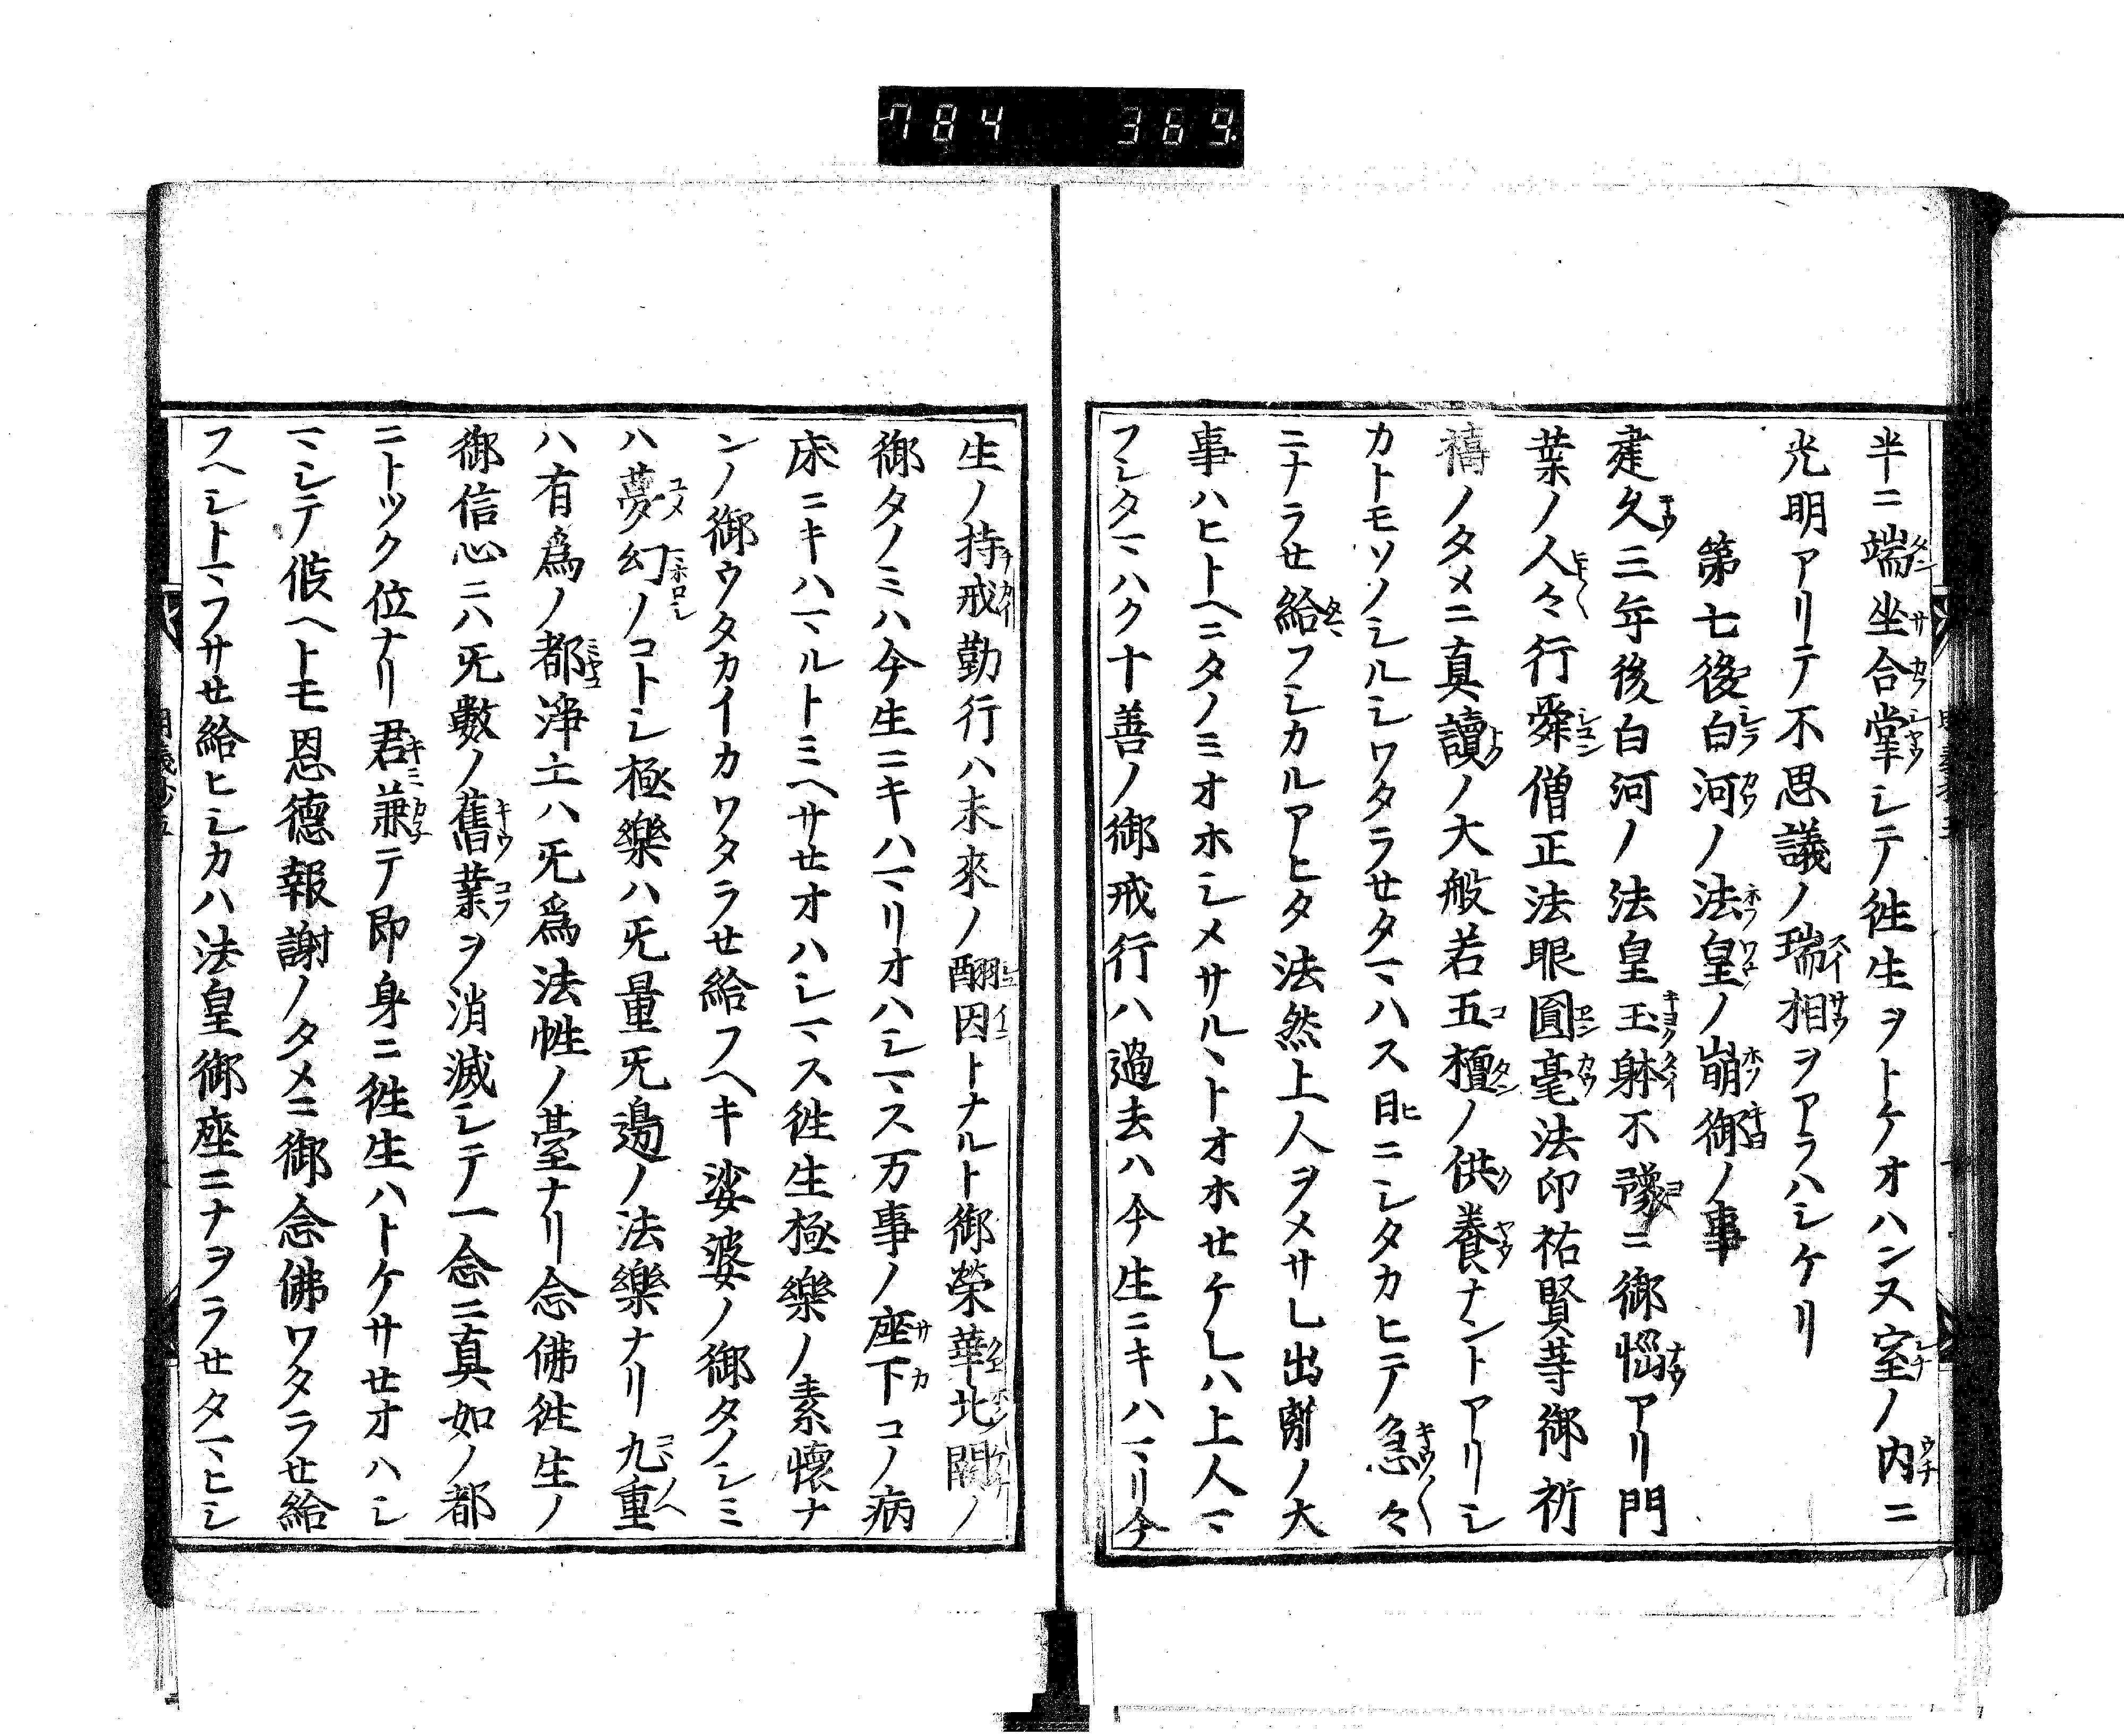 784 369
半ニ端坐合掌シテ徃生ヲトケオハンヌ室ノ内ニ
光明アリテ不思議ノ瑞相ヲアラハシケリ
第七後白河ノ法皇ノ崩御ノ事
建久三年後白河ノ法皇玉躰不豫ニ御惱アリ門
葉ノ人々行舜僧正法眼圓毫法印祐賢等御祈
禱ノタメニ真讀ノ大般若五檀ノ供養ナントアリシ
カトモソノシルシワタラセタマハス日ニシタカヒテノ急々
ニナラせ給フシカルアヒタ法然上人ヲメサレ出離ノ大
事ハヒトヘニタノミオホシメサルヽトオホせケレハ上人マ
フシタマハク十善ノ御戒行ハ過去ハ今生ニキハマリ今
生ノ持戒勤行ハ未來ノ酬因トナルト御榮華北闕ノ
御タノミハ今生ニキハマリオハシマス万事ノ座下コノ病
床ニキハマルトミヘサせオハシマス徃生極樂ノ素懷ナ
ンノ御ウタカイカワタラせ給フヘキ娑婆ノ御タノシミ
ハ夢幻ノコトシ極樂ハ旡量旡邊ノ法樂ナリ九重
ハ有爲ノ都淨土ハ旡爲法性ノ臺ナリ念佛徃生ノ
御信心ニハ旡數ノ舊業ヲ消滅シテ一念ニ真如ノ都
ニトツク位ナリ君兼テ即身ニ徃生ハトケサせオハシ
マシテ候ヘトモ恩德報謝ノタメニ御念佛ワタラせ給
フヘシトマフサせ給ヒシカハ法皇御座ニナヲラせタマヒシ